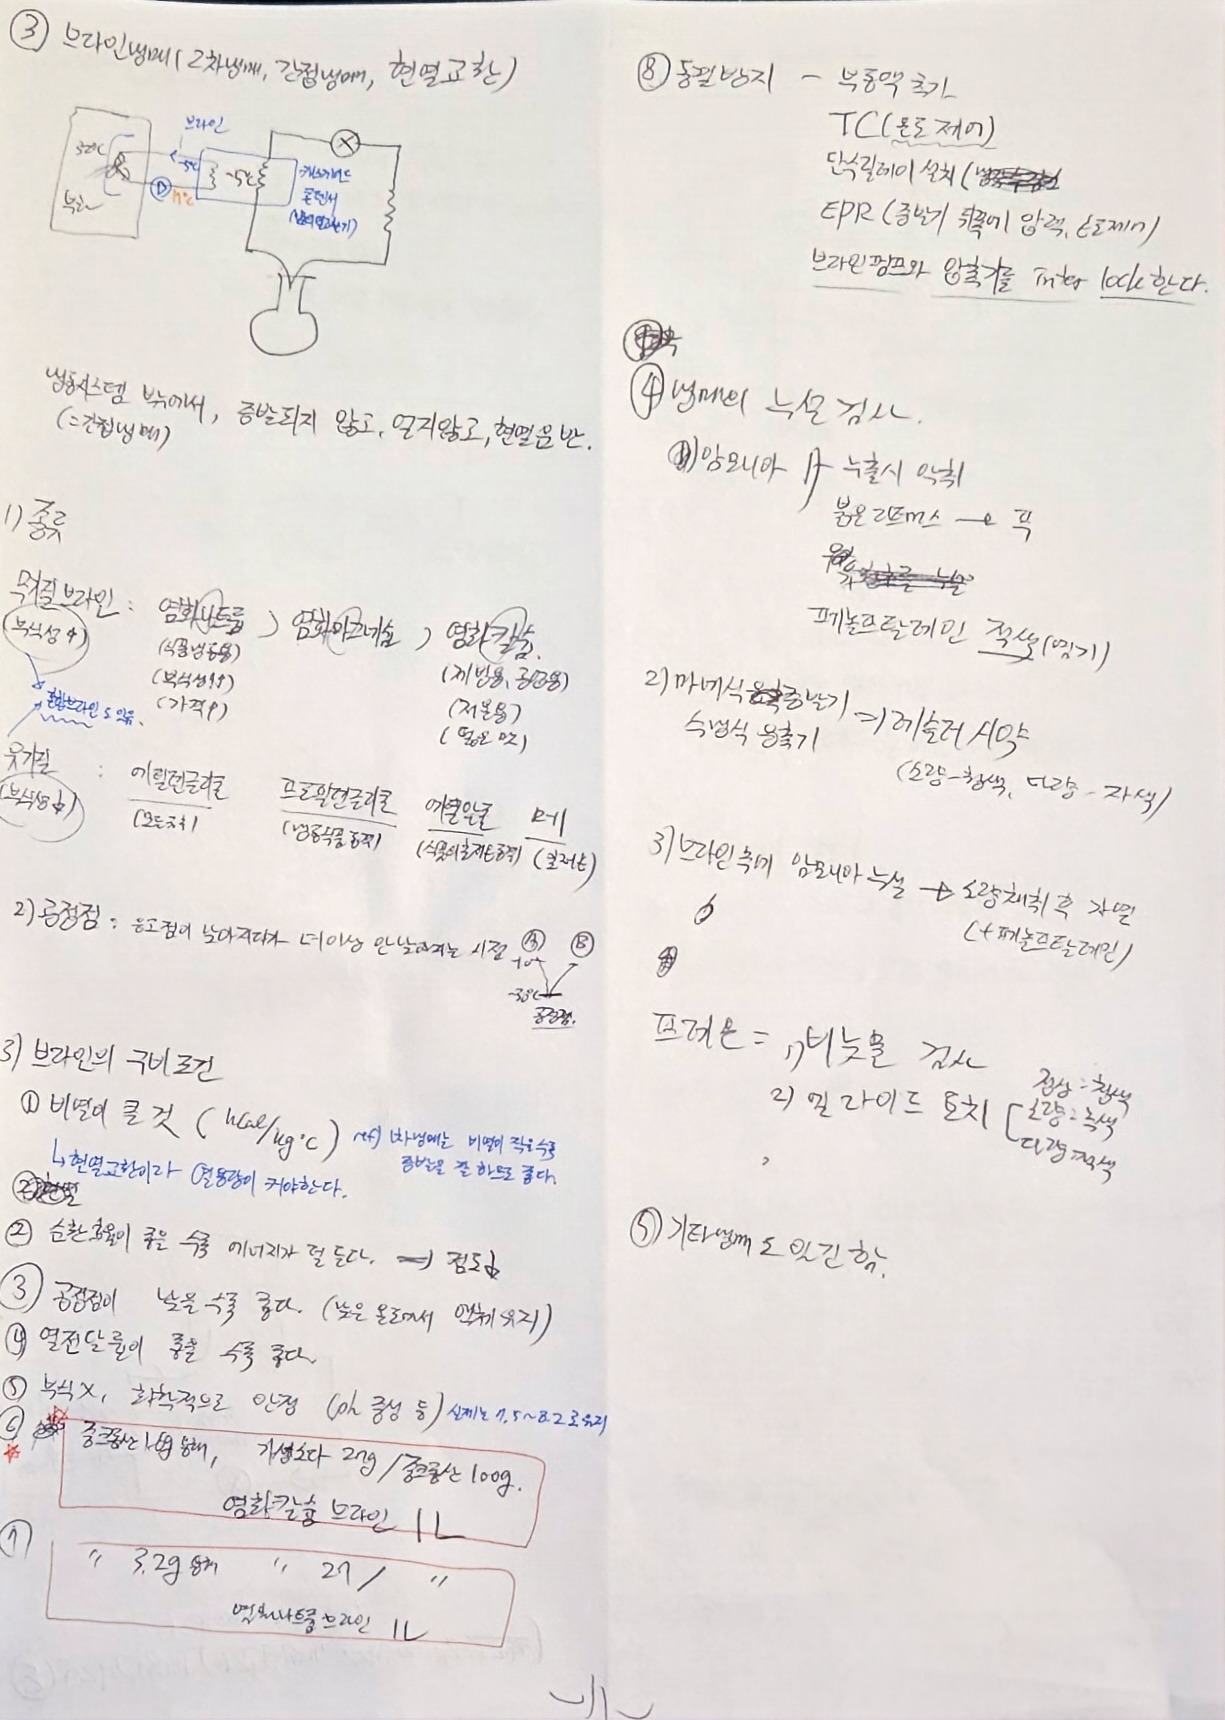 ③ 브라인냉매(2차냉매, 간접냉매, 현열교환)
브라인
-5℃
-5℃
P
냉동시스템 밖에서, 증발되지 않고, 얼지않고, 현열운반.
(=간접냉매)
1) 종류
무기질브라인: 염화나트륨 > 염화마그네슘 > 염화칼슘.
(부식성↑)
(식품냉동용)
(제빙용, 공업용)
(부식성↑)
(저온용)
(가격↑)
(떫은 맛)
유기질 : 에틸렌글리콜 프로필렌글리콜 에틸알콜
(부식성↓)
2) 공정점 : 응고점이 낮아지다가 더이상 안낮아지는 시점
Ⓐ Ⓑ
공정점.
3) 브라인의 구비조건
① 비열이 클 것 (kcal/kg℃) ref) 1차냉매는 비열이 작을수록
증발을 잘 하므로 좋다.
↳ 현열교환이라 열용량이 커야한다.
② 순환효율이 좋을 수록 에너지가 덜 든다. → 점도↓
③ 공정점이 낮을 수록 좋다. (낮은 온도에서 액체 유지)
④ 열전달률이 좋을 수록 좋다.
⑤ 부식X, 화학적으로 안정 (ph 중성 등) 실제는 7.5~8.2로 유지
⑥ 중크롬산 용해, 가성소다 27g / 중크롬산 100g.
염화칼슘 브라인 1L
⑦ 〃 3.2g 용해 〃 27 / 〃
염화나트륨브라인 1L
⑧ 동결방지 - 부동액 추가
TC(온도제어)
단수릴레이 설치
EPR (증발기 뒤쪽에 압력, 온도제어)
브라인펌프와 압축기를 Inter lock한다.
④ 냉매의 누설 검사.
암모니아 1) 누출시 악취
붉은 리트머스 → 푸
페놀프탈레인 적색(염기)
2) 만액식 증발기
수냉식 응축기
⇒ 네슬러 시약
(소량-황색, 다량-자색)
3) 브라인측에 암모니아 누설 → 소량채취 후 가열
(+페놀프탈레인)
프레온 = 1) 비눗물 검사
2) 할라이드 토치
정상=청색
소량=녹색
다량=자색
⑤ 기타냉매도 있긴 함.